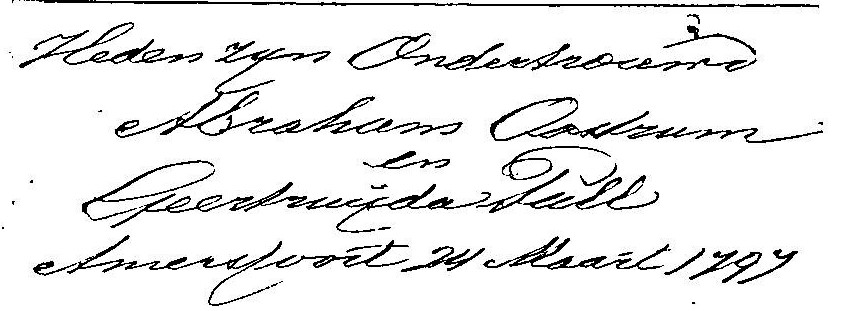 Heden zyn Ondertrouwd
Abraham Oostrum
en
Geertruijda Tull
Amersfoort 24 Maart 1797